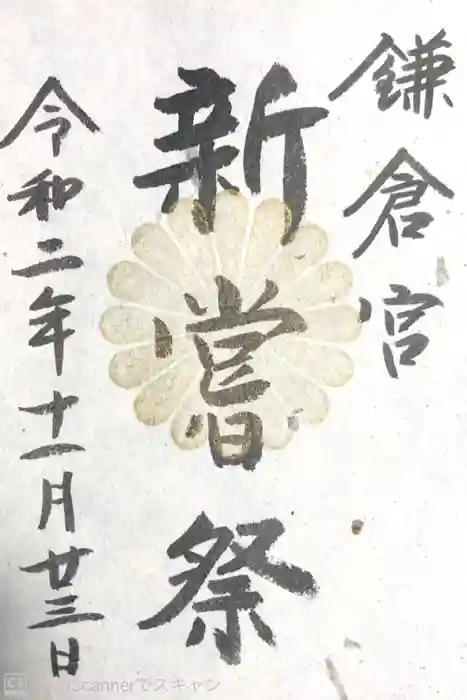 鎌倉宮
新嘗祭
令和二年十一月廿三日
CS CamScannerでスキャン